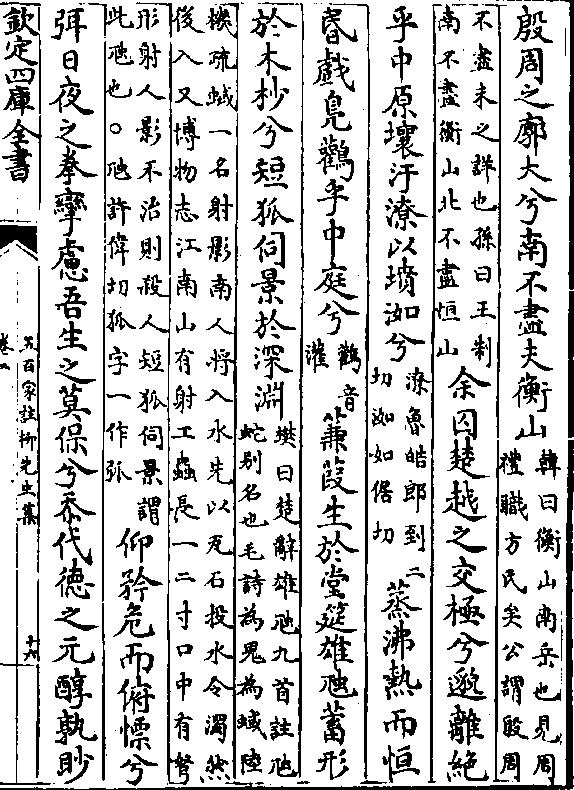 殷周之廓大兮南不盡夫衡山
韓曰衡山南岳也見周
禮職方氏矣公謂殷周
不盡未之詳也孫曰王制
南不盡衡山北不盡恒山
余囚楚越之交極兮邈離絶
乎中原壤汙潦以墳洳兮
潦魯皓郎到二
切洳如倨切
蒸沸熱而恒
昬戲鳬鸛乎中庭兮
鸛音
灌
蒹葭生於堂筵雄虺蓄形
於木杪兮短狐伺景於深淵
樊曰楚辭雄虺九首註虺
蛇别名也毛詩為鬼為蜮陸
機疏蜮一名射影南人將入水先以瓦石投水令濁然
後入又博物志江南山有射工蟲長一二寸口中有弩
形射人影不治則殺人短狐伺景謂
此虺也○虺許偉切狐字一作弧
仰矜危而俯慄兮
弭日夜之拳攣慮吾生之莫保兮忝代德之元醇孰眇
欽定四庫全書
五百家註柳先生集
卷一
十六